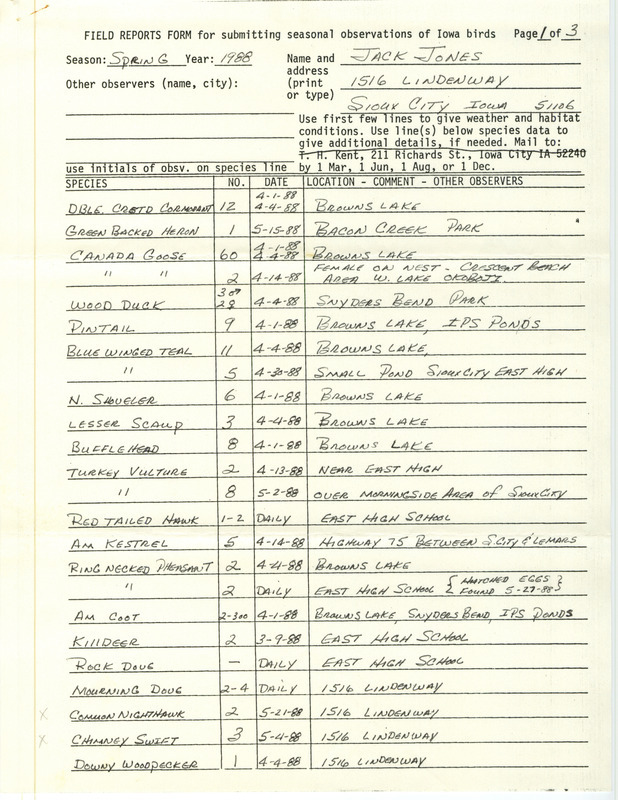 FIELD REPORTS FORM for submitting seasonal observations of Iowa birds Page 1 of 3
Season: SPRING Year: 1988 Name and JACK JONES
address
Other observers (name, city): (print 1516 LINDENWAY
or type)
SIOUX CITY IOWA 51106
Use first few lines to give weather and habitat
conditions. Use line(s) below species data to
give additional details, if needed. Mail to:
T. H. Kent, 211 Richards St., Iowa City IA 52240
use initials of obsv. on species line by 1 Mar, 1 Jun, 1 Aug, or 1 Dec.
SPECIES NO. DATE LOCATION - COMMENT - OTHER OBSERVERS
4-1-88
DBLE. CRSTD CORMORANT 12 4-4-88 BROWNS LAKE
GREEN BACKED HERON 1 5-15-88 BACON CREEK PARK
4-1-88
CANADA GOOSE 60 4-4-88 BROWNS LAKE
FEMALE ON NEST - CRESCENT BEACH
" " 2 4-14-88 AREA W. LAKE OKOBOJI.
WOOD DUCK 28 4-4-88 SNYDERS BEND PARK
PINTAIL 9 4-1-88 BROWNS LAKE, IPS PONDS
BLUE WINGED TEAL 11 4-4-88 BROWNS LAKE,
" 5 4-30-88 SMALL POND SIOUX CITY EAST HIGH
N. SHOVELER 6 4-1-88 BROWNS LAKE
LESSER SCAUP 3 4-4-88 BROWNS LAKE
BUFFLEHEAD 8 4-1-88 BROWNS LAKE
TURKEY VULTURE 2 4-13-88 NEAR EAST HIGH
" 8 5-2-88 OVER MORNINGSIDE AREA OF SIOUX CITY
RED TAILED HAWK 1-2 DAILY EAST HIGH SCHOOL
AM KESTREL 5 4-14-88 HIGHWAY 75 BETWEEN S.CITY & LEMARS
RING NECKED PHEASANT 2 4-4-88 BROWNS LAKE
" 2 DAILY EAST HIGH SCHOOL { HATCHED EGGS }
{ FOUND 5-27-88 }
AM COOT 2-300 4-1-88 BROWNS LAKE, SNYDERS BEND, IPS PONDS
KILLDEER 2 3-9-88 EAST HIGH SCHOOL
ROCK DOUG — DAILY EAST HIGH SCHOOL
MOURNING DOUG 2-4 DAILY 1516 LINDENWAY
X COMMON NIGHTHAWK 2 5-21-88 1516 LINDENWAY
X CHIMNEY SWIFT 3 5-4-88 1516 LINDENWAY
DOWNY WOODPECKER 1 4-4-88 1516 LINDENWAY